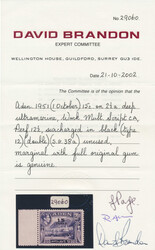 No. 29060
DAVID BRANDON
EXPERT COMMITTEE
WELLINGTON HOUSE, GUILDFORD, SURREY GU3 1DS.
Date 21-10-2002
The Committee is of the opinion that the
Aden 1951 (1 October) 15c on 2½a deep
ultramarine, Wmk. Mult Script CA,
Perf 12½, surcharged in black (Type
12) (double) (S.G. 38a) unused,
marginal with full original gum is
genuine
29060